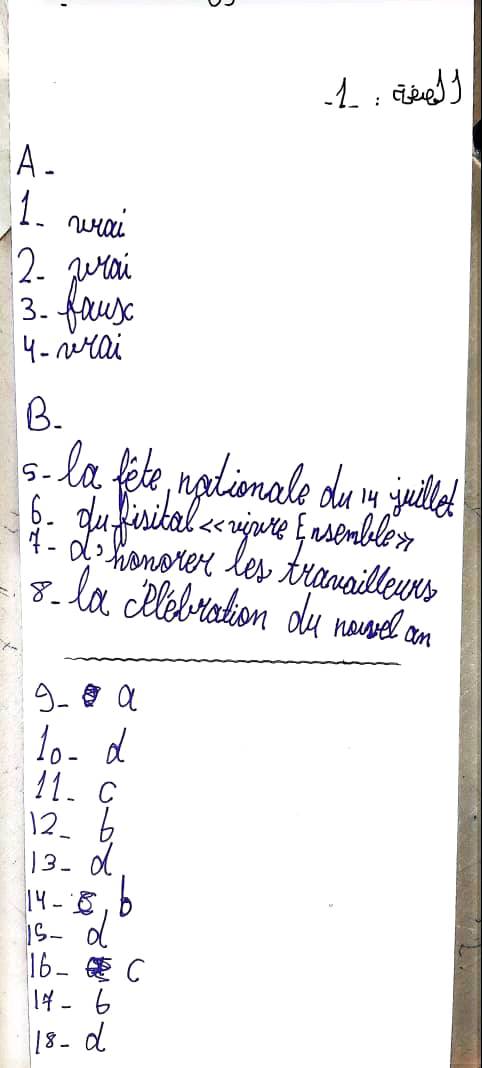 -1- :
A-
1- vrai
2- vrai
3- faux
4- vrai
B-
5- la fête nationale du 14 juillet
6- du fisital <<vivre Ensemble>>
7- d'honorer les travailleurs
8- la célébration du nouvel an
9- a
10- d
11- c
12- b
13- d
14- b
15- d
16- c
17- b
18- d